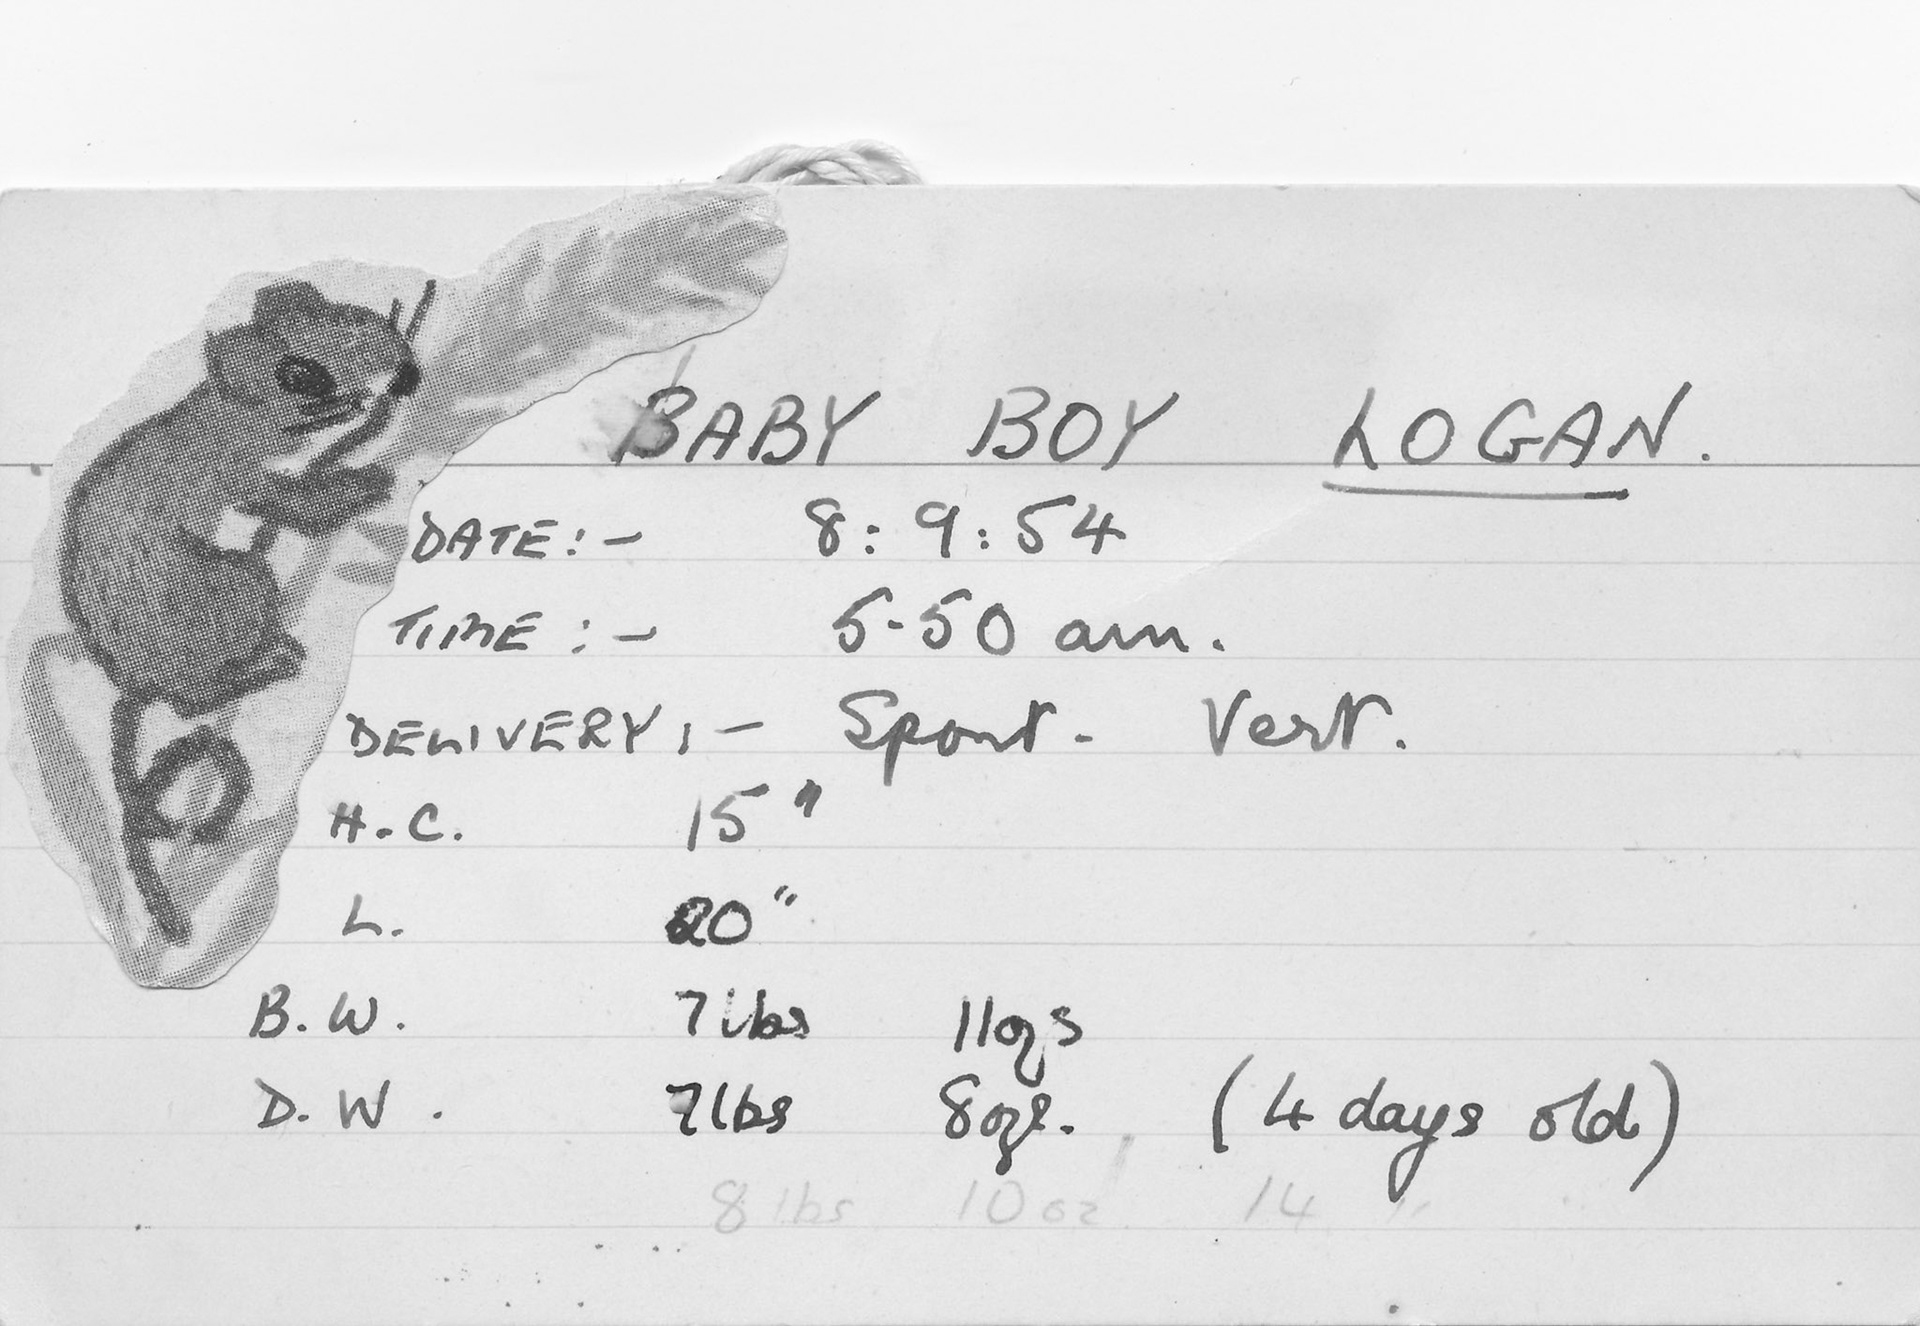 BABY BOY LOGAN.
DATE:- 8:9:54
TIME:- 5-50 am.
DELIVERY:- Spont. Vert.
H.C. 15"
L. 20"
B.W. 7lbs 11ozs
D.W. 7lbs 8ozs. (4 days old)
8 lbs 10 oz 14 "